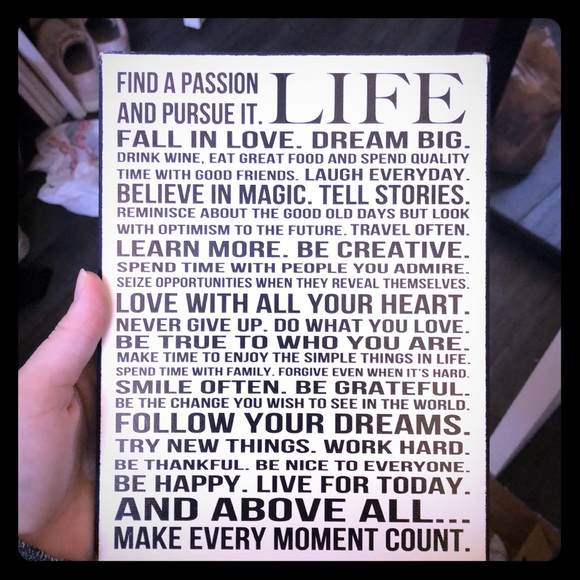 FIND A PASSION LIFE
AND PURSUE IT.
FALL IN LOVE. DREAM BIG.
DRINK WINE, EAT GREAT FOOD AND SPEND QUALITY
TIME WITH GOOD FRIENDS. LAUGH EVERYDAY.
BELIEVE IN MAGIC. TELL STORIES.
REMINISCE ABOUT THE GOOD OLD DAYS BUT LOOK
WITH OPTIMISM TO THE FUTURE. TRAVEL OFTEN.
LEARN MORE. BE CREATIVE.
SPEND TIME WITH PEOPLE YOU ADMIRE.
SEIZE OPPORTUNITIES WHEN THEY REVEAL THEMSELVES.
LOVE WITH ALL YOUR HEART.
NEVER GIVE UP. DO WHAT YOU LOVE.
BE TRUE TO WHO YOU ARE.
MAKE TIME TO ENJOY THE SIMPLE THINGS IN LIFE.
SPEND TIME WITH FAMILY. FORGIVE EVEN WHEN IT'S HARD.
SMILE OFTEN. BE GRATEFUL.
BE THE CHANGE YOU WISH TO SEE IN THE WORLD.
FOLLOW YOUR DREAMS.
TRY NEW THINGS. WORK HARD.
BE THANKFUL. BE NICE TO EVERYONE.
BE HAPPY. LIVE FOR TODAY.
AND ABOVE ALL...
MAKE EVERY MOMENT COUNT.